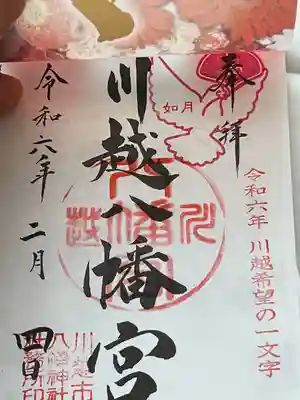 奉拝
如月
令和六年 川越希望の一文字
川越八幡宮
令和六年 二月 四日
川越市
八幡神社